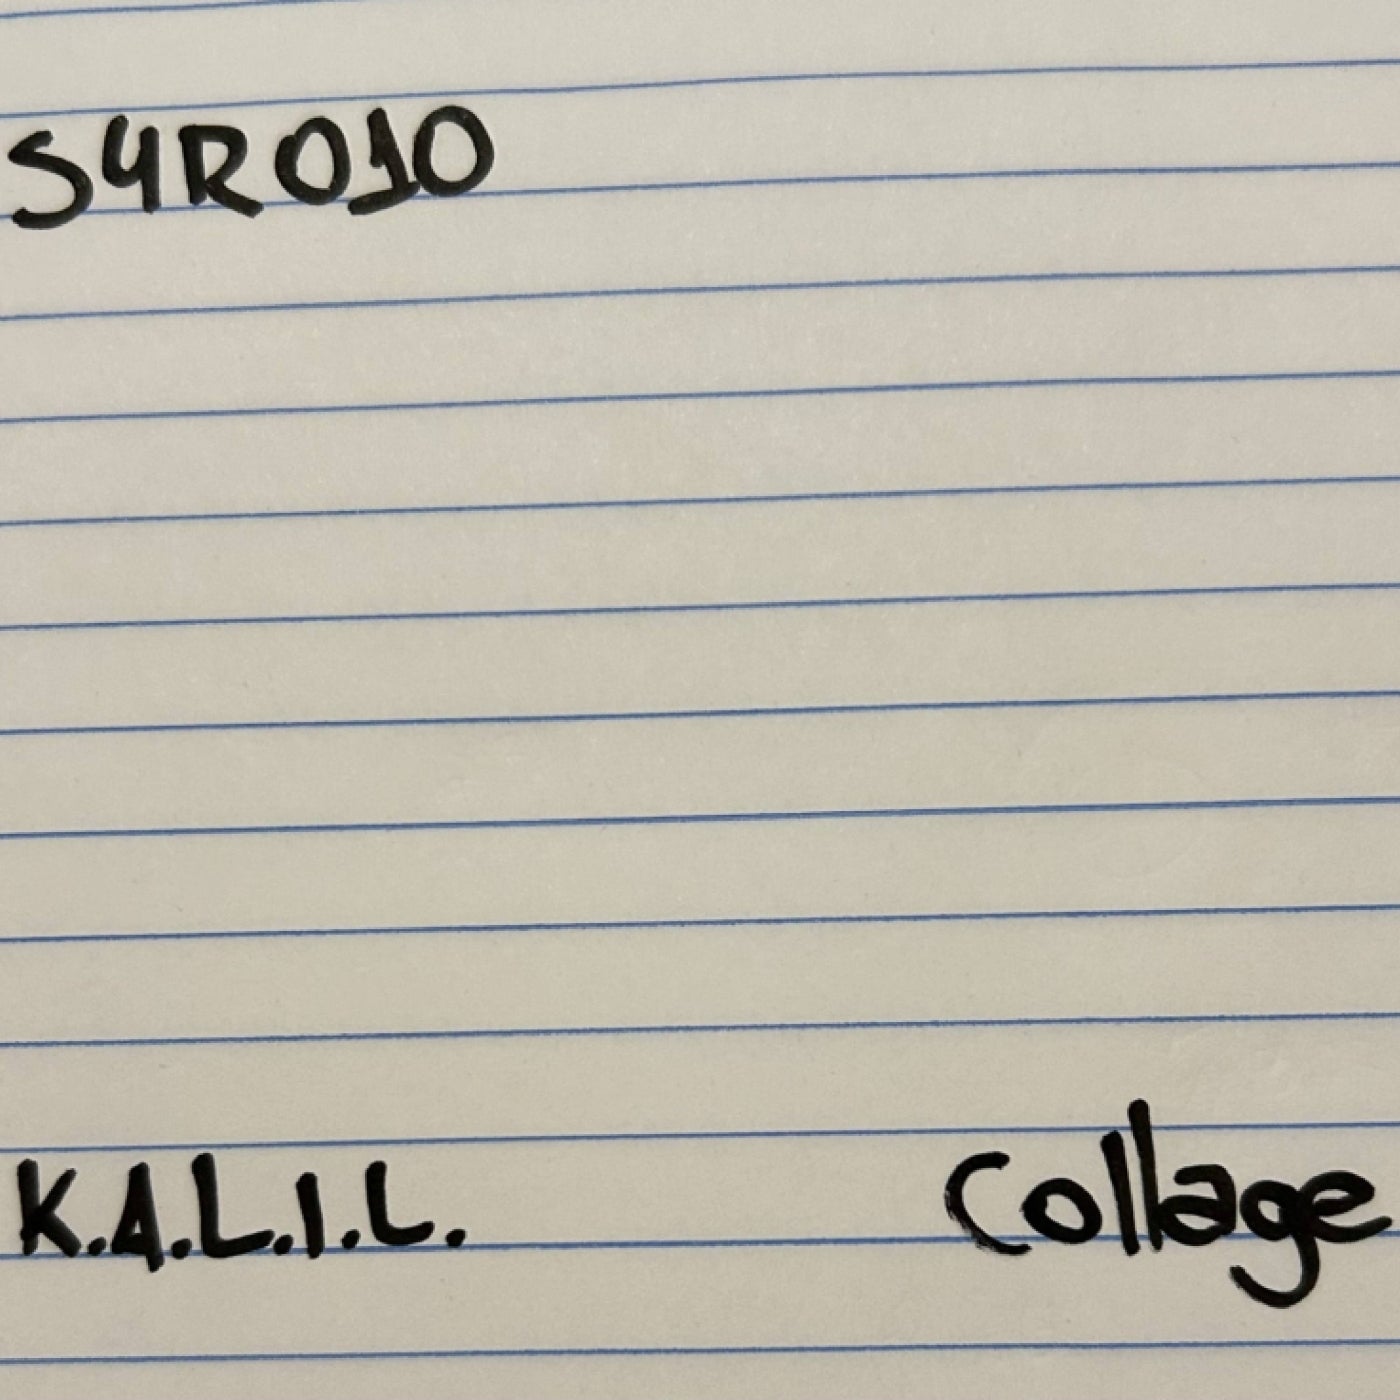 S4R010
K.A.L.I.L.
Collage